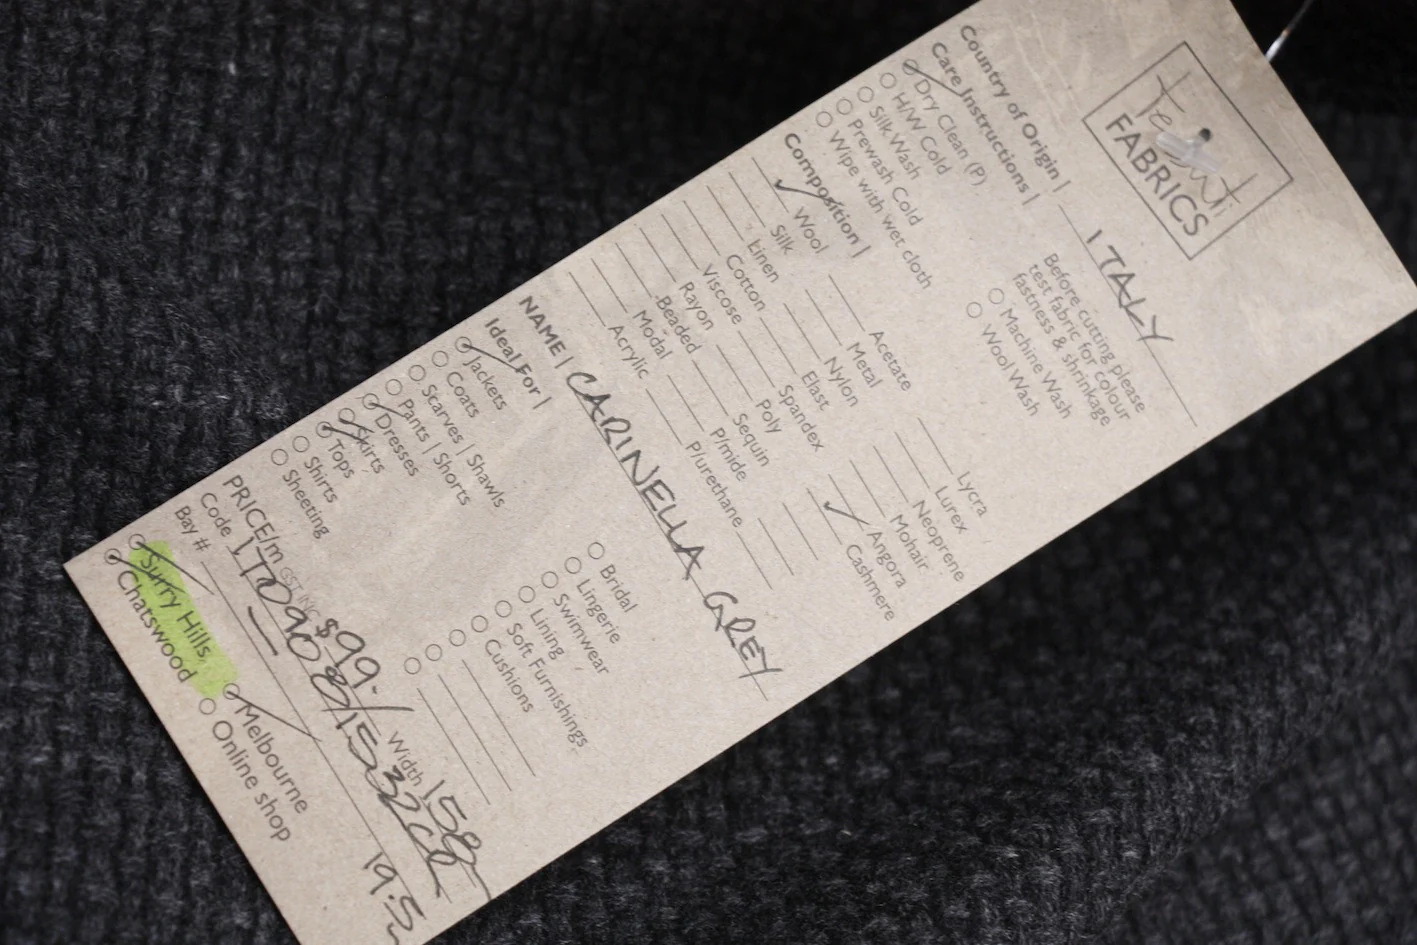 Tessuti
FABRICS
Country of Origin | ITALY
Care Instructions |
Dry Clean (P)
H/W Cold
Silk Wash
Prewash Cold
Wipe with wet cloth
Before cutting please
test fabric for colour
fastness & shrinkage
Machine Wash
Wool Wash
Composition |
Wool
Silk
Linen
Cotton
Viscose
Rayon
Beaded
Modal
Acrylic
Acetate
Metal
Nylon
Elast
Spandex
Poly
Sequin
P/mide
P/urethane
Lycra
Lurex
Neoprene
Mohair
Angora
Cashmere
NAME | CARINELLA GREY
Ideal For |
Jackets
Coats
Scarves | Shawls
Pants | Shorts
Dresses
Skirts
Tops
Shirts
Sheeting
Bridal
Lingerie
Swimwear
Lining
Soft Furnishings
Cushions
PRICE/m GST INC $99.- Width 158
Code
Bay # 19.5
Surry Hills
Chatswood
Melbourne
Online shop